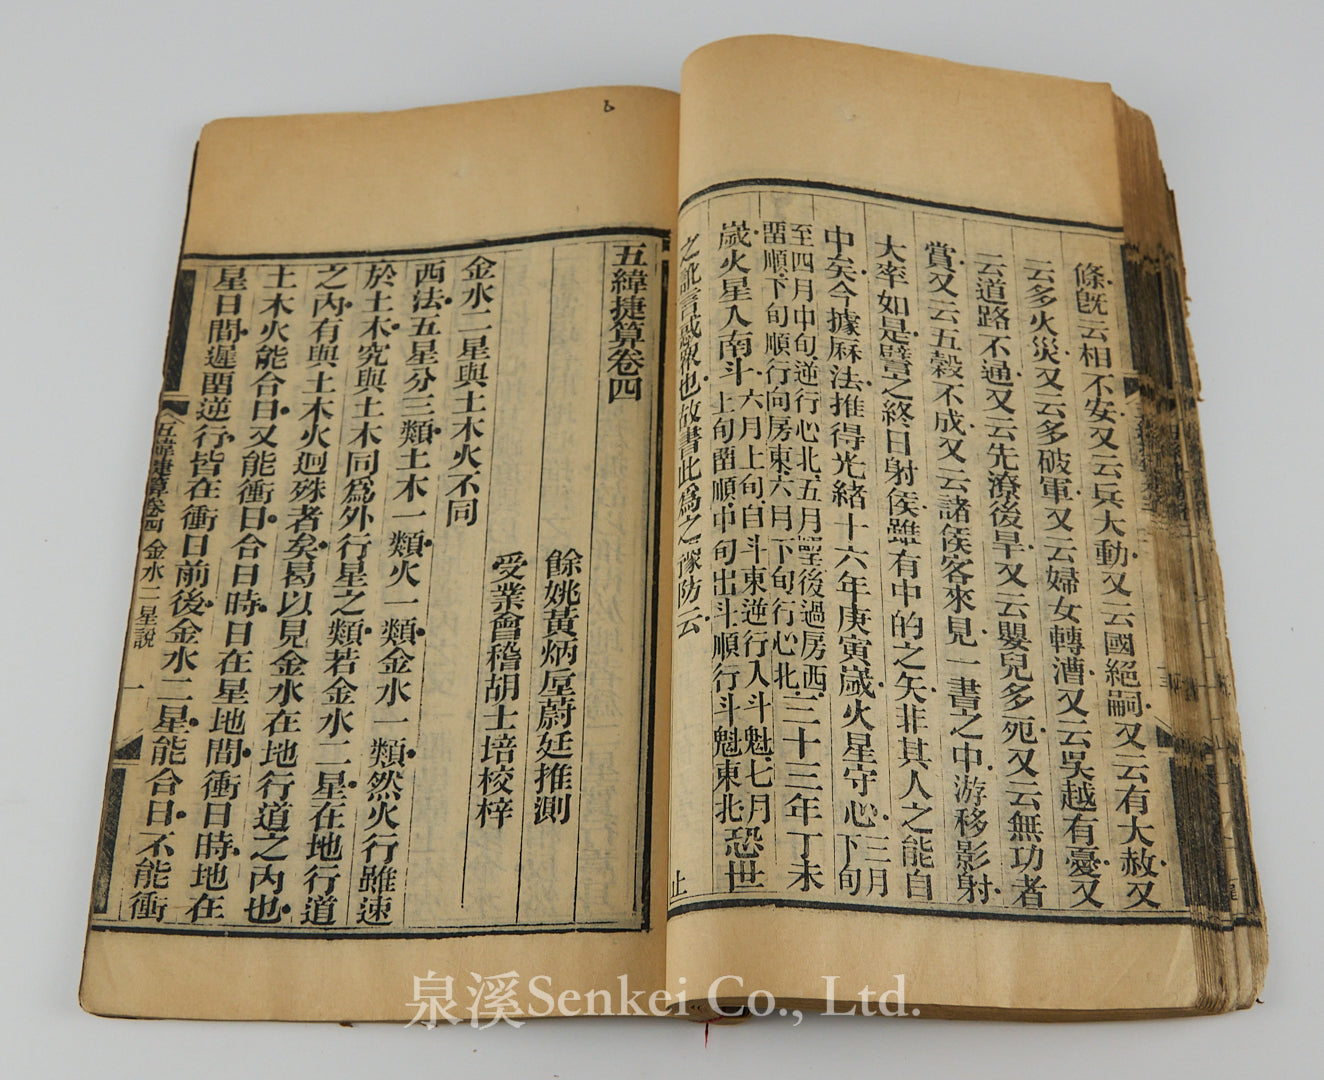 條既云相不安又云兵大動又云國絕嗣又云有大赦又
云多火災又云多破軍又云婦女轉漕又云吳越有憂又
云道路不通又云先潦後旱又云嬰兒多死又云無功者
賞又云五穀不成又云諸侯客來見一書之中游移影射
大率如是譬之終日射侯雖有中的之矢非其人之能自
中矣今據厤法推得光緒十六年庚寅歲火星守心三月下旬
至四月中旬逆行心北五月畱後過房西
畱順下旬順行向房東六月下旬行心北三十三年丁未
歲火星入南斗六月上旬自斗東逆行入斗魁七月
上旬畱順中旬出斗順行斗魁東北恐世
之訛言惑衆也故書此爲之豫防云
止
五緯捷算卷四
餘姚黃炳垕蔚廷推測
受業會稽胡士培校梓
金水二星與土木火不同
西法五星分三類土木一類火一類金水一類然火行雖速
於土木究與土木同爲外行星之類若金水二星在地行道
之內有與土木火迥殊者矣曷以見金水在地行道之內也
土木火能合日又能衝日合日時日在星地間衝日時地在
星日間遲畱逆行皆在衝日前後金水二星能合日不能衝
五緯捷算卷四 金水二星說 一
6
泉溪Senkei Co., Ltd.